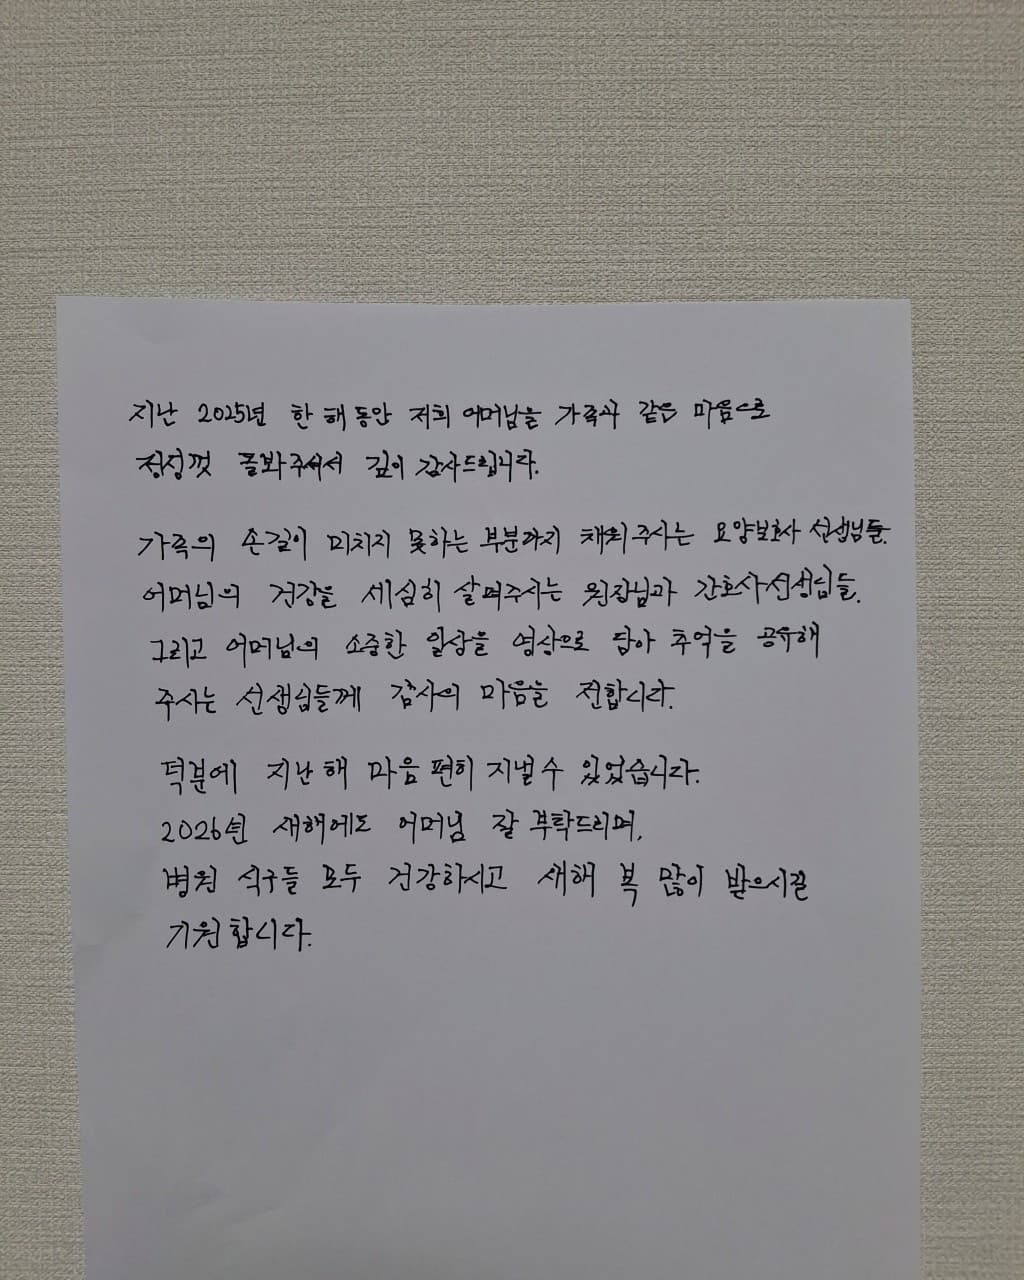 지난 2025년 한 해 동안 저희 어머님을 가족과 같은 마음으로
정성껏 돌봐주셔서 깊이 감사드립니다.
가족의 손길이 미치지 못하는 부분까지 채워주시는 요양보호사 선생님들.
어머님의 건강을 세심히 살펴주시는 원장님과 간호사선생님들.
그리고 어머님의 소중한 일상을 영상으로 담아 추억을 공유해
주시는 선생님들께 감사의 마음을 전합니다.
덕분에 지난해 마음 편히 지낼 수 있었습니다.
2026년 새해에도 어머님 잘 부탁드리며,
병원 식구들 모두 건강하시고 새해 복 많이 받으시길
기원합니다.